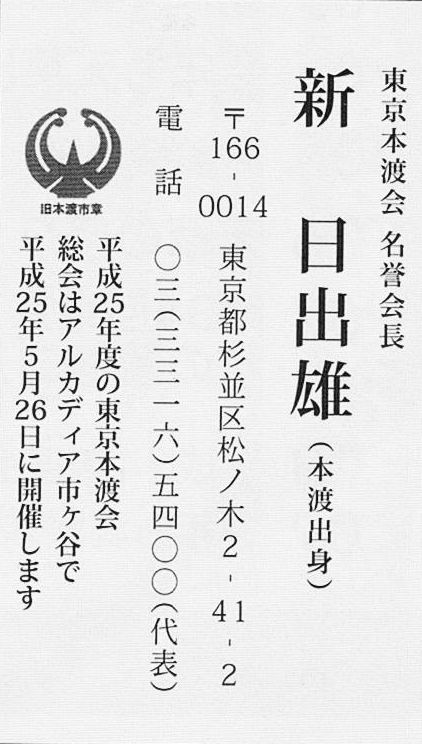 東京本渡会 名誉会長
新 日出雄(本渡出身)
〒166-0014 東京都杉並区松ノ木2-41-2
電話 〇三(三三一六)五四〇〇(代表)
旧本渡市章
平成25年度の東京本渡会
総会はアルカディア市ヶ谷で
平成25年5月26日に開催します